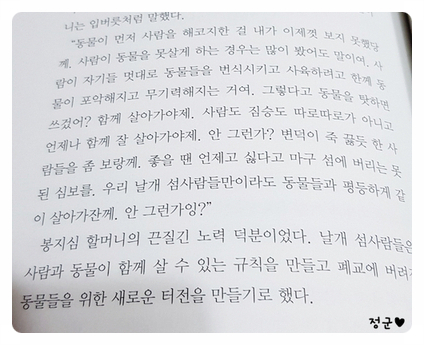 니는 입버릇처럼 말했다.
“동물이 먼저 사람을 해코지한 걸 내가 이제껏 보지 못했당
께. 사람이 동물을 못살게 하는 경우는 많이 봤어도 말이여. 사
람이 자기들 멋대로 동물들을 번식시키고 사육하려고 한께 동
물이 포악해지고 무기력해지는 거여. 그렇다고 동물을 탓하면
쓰겄어? 함께 살아가야제. 사람도 짐승도 따로따로가 아니고
언제나 함께 잘 살아가야제. 안 그런가? 변덕이 죽 끓듯 한 사
람들을 좀 보랑께. 좋을 땐 언제고 싫다고 마구 섬에 버리는 못
된 심보를. 우리 날개 섬사람들만이라도 동물들과 평등하게 같
이 살아가잔께. 안 그런가잉?”
봉지심 할머니의 끈질긴 노력 덕분이었다. 날개 섬사람들은
사람과 동물이 함께 살 수 있는 규칙을 만들고 폐교에 버려
동물들을 위한 새로운 터전을 만들기로 했다.
정군♥